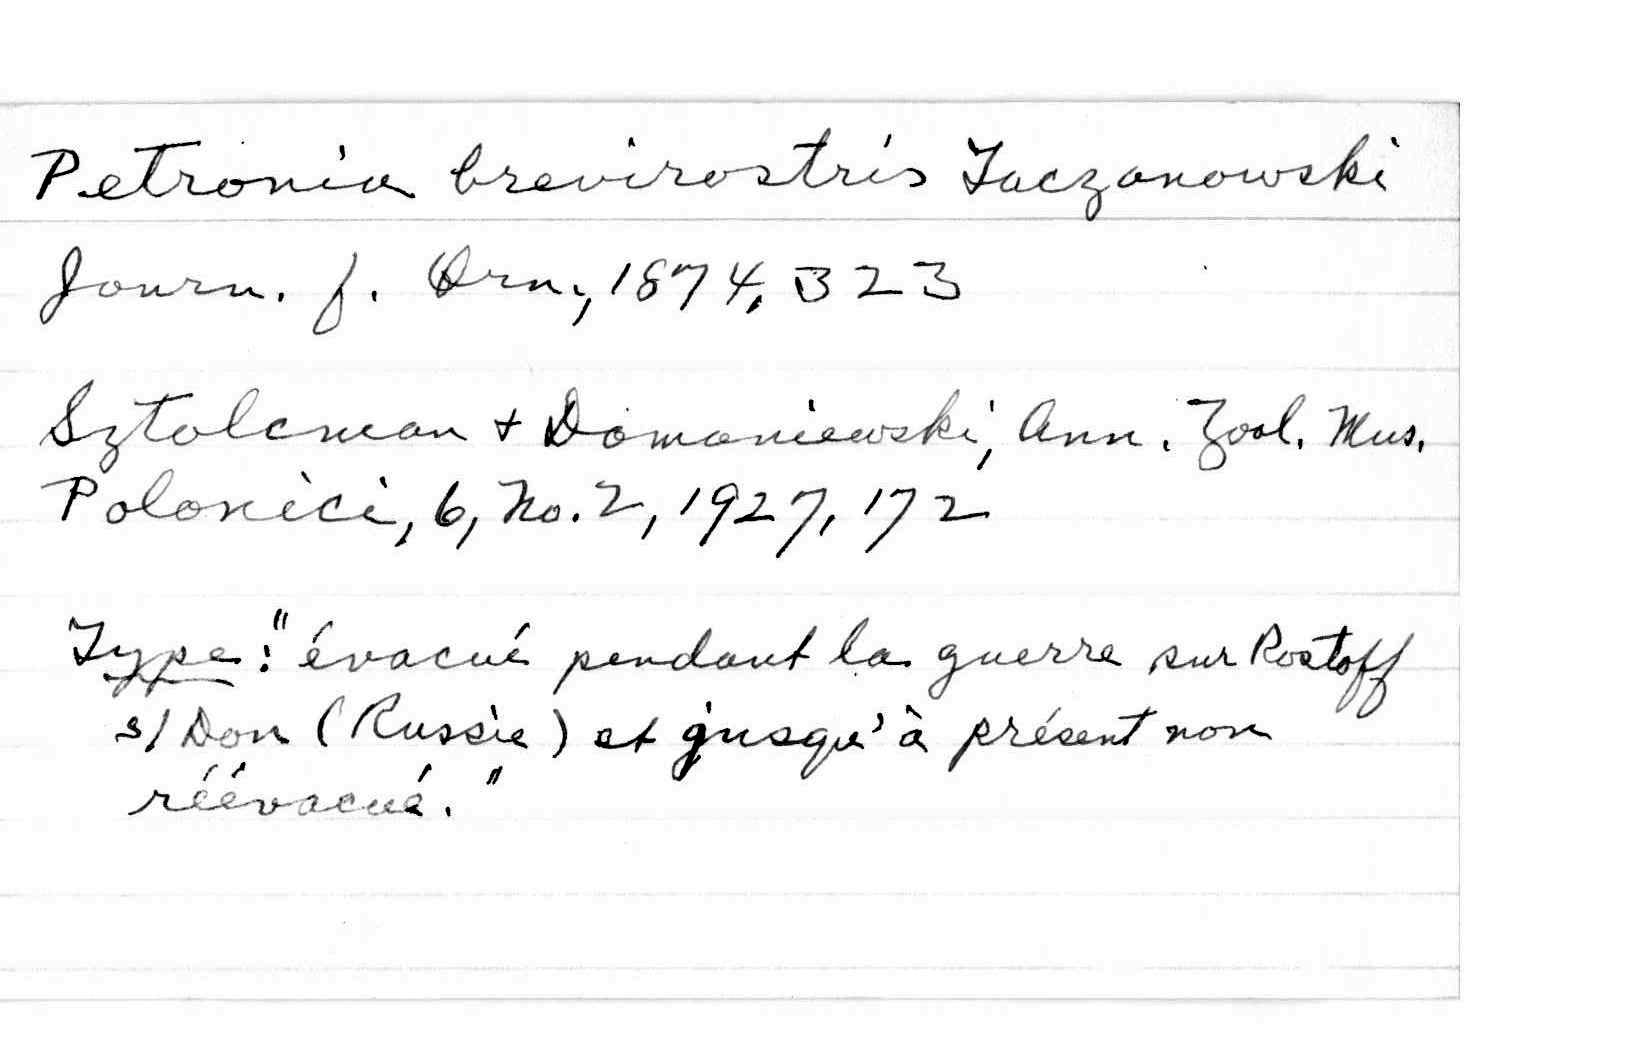 Petronia brevirostris Taczanowski
Journ. f. Orn., 1874, 323
Sztolcman + Domaniewski, Ann. Zool. Mus.
Polonici, 6, No. 2, 1927, 172
Type: "évacué pendant la guerre sur Rostoff
s/Don (Russie) et jusqu'à présent non
réévacué."